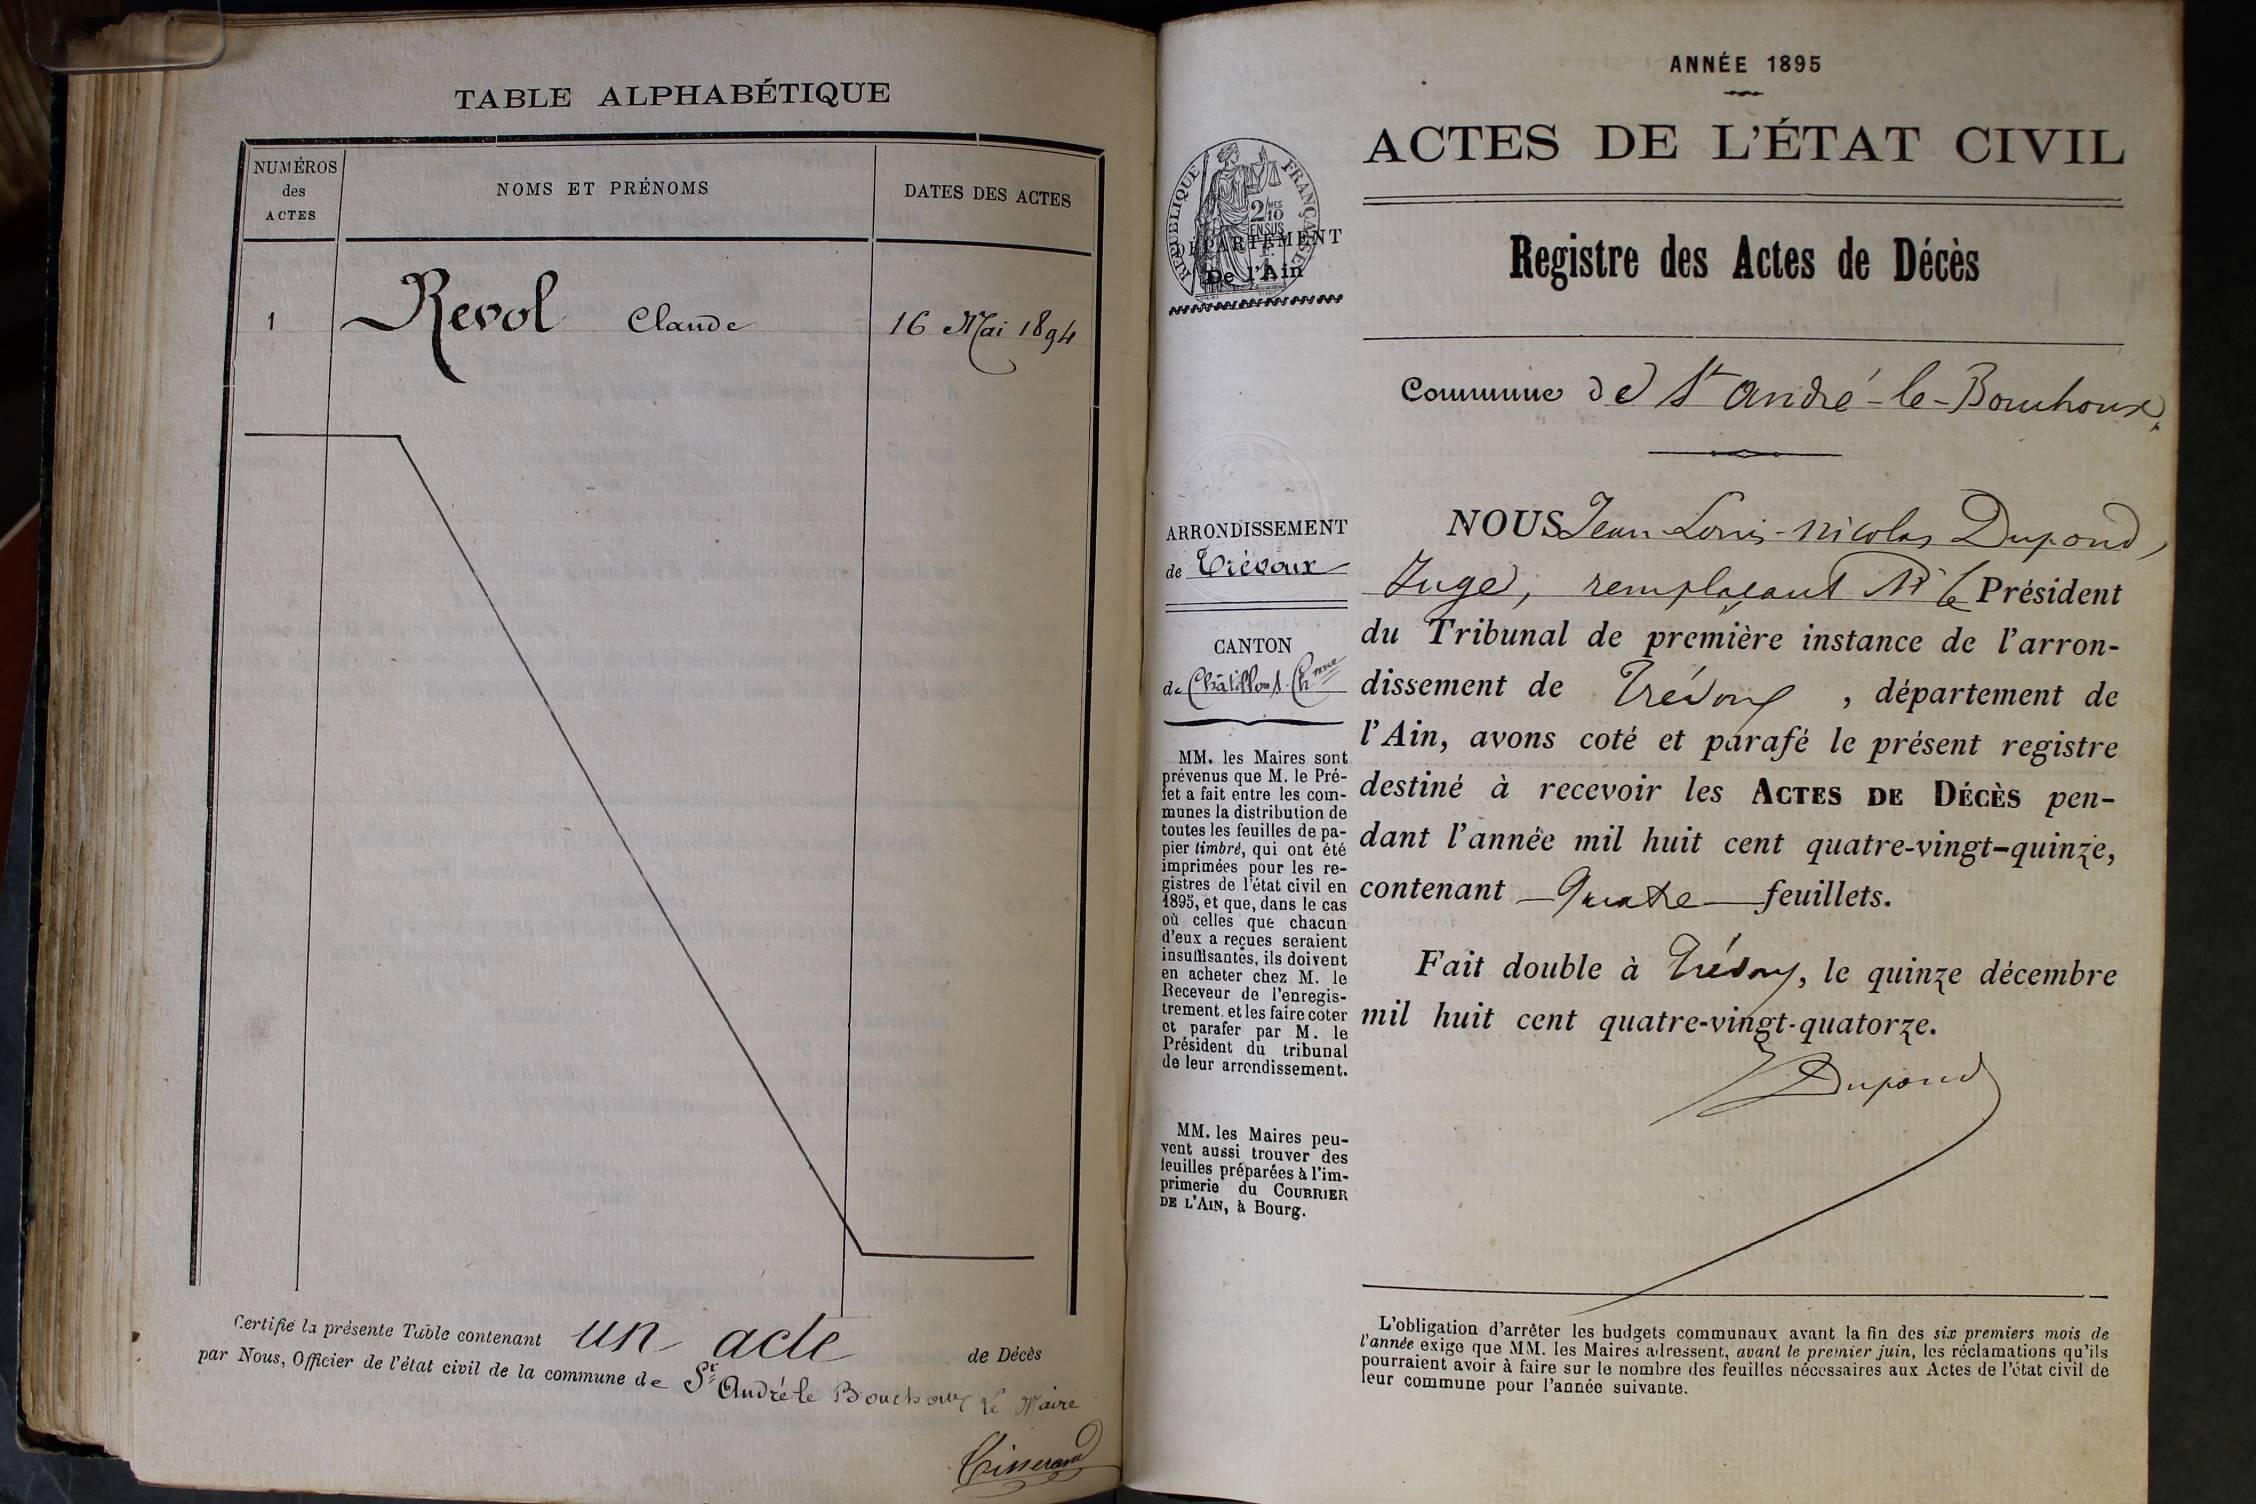 TABLE ALPHABÉTIQUE
NUMÉROS
des
ACTES
NOMS ET PRÉNOMS
DATES DES ACTES
1 Revol Claude 16 Mai 1894
Certifié la présente Table contenant un acte de Décès
par Nous, Officier de l'état civil de la commune de St André le Bouchoux Le Maire
Tisserand
ANNÉE 1895
ACTES DE L'ÉTAT CIVIL
RÉPUBLIQUE FRANÇAISE
2/10 MES
EN SUS
DÉPARTEMENT
De l'Ain
Registre des Actes de Décès
Commune de St André-le-Bouchoux,
ARRONDISSEMENT
de Trévoux
CANTON
de Châtillon s. Chnne
MM. les Maires sont
prévenus que M. le Pré-
fet a fait entre les com-
munes la distribution de
toutes les feuilles de pa-
pier timbré, qui ont été
imprimées pour les re-
gistres de l'état civil en
1895, et que, dans le cas
où celles que chacun
d'eux a reçues seraient
insuffisantes, ils doivent
en acheter chez M. le
Receveur de l'enregis-
trement et les faire coter
et parafer par M. le
Président du tribunal
de leur arrondissement.
MM. les Maires peu-
vent aussi trouver des
feuilles préparées à l'im-
primerie du COURRIER
DE L'AIN, à Bourg.
NOUS Jean-Louis-Nicolas Dupond,
Juge, remplaçant Mr le Président
du Tribunal de première instance de l'arron-
dissement de Trévoux, département de
l'Ain, avons coté et parafé le présent registre
destiné à recevoir les ACTES DE DÉCÈS pen-
dant l'année mil huit cent quatre-vingt-quinze,
contenant Quatre feuillets.
Fait double à Trévoux, le quinze décembre
mil huit cent quatre-vingt-quatorze.
Dupond
L'obligation d'arrêter les budgets communaux avant la fin des six premiers mois de
l'année exige que MM. les Maires adressent, avant le premier juin, les réclamations qu'ils
pourraient avoir à faire sur le nombre des feuilles nécessaires aux Actes de l'état civil de
leur commune pour l'année suivante.